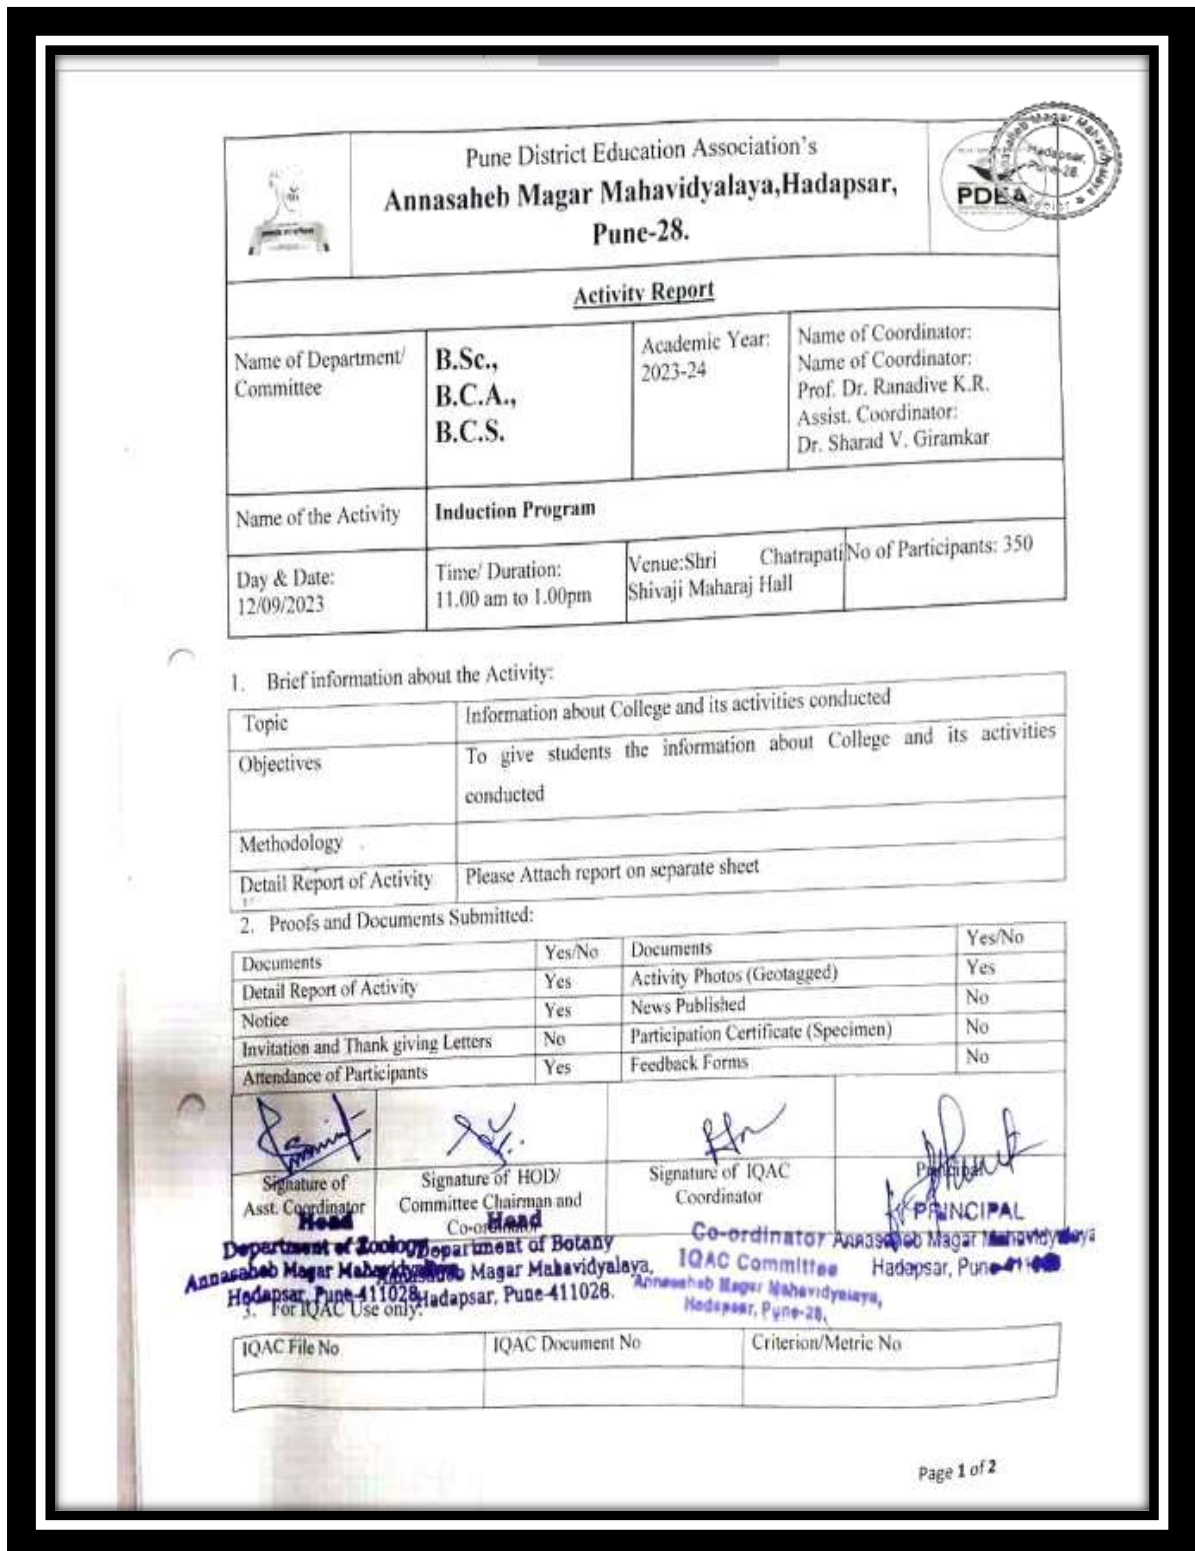 Pune District Education Association's
Annasaheb Magar Mahavidyalaya,Hadapsar,
Pune-28.
PDEA
Annasaheb Magar Mahavidyalaya
Hadapsar,
Pune-28.
Activity Report
Name of Department/
Committee
B.Sc.,
B.C.A.,
B.C.S.
Academic Year:
2023-24
Name of Coordinator:
Name of Coordinator:
Prof. Dr. Ranadive K.R.
Assist. Coordinator:
Dr. Sharad V. Giramkar
Name of the Activity
Induction Program
Day & Date:
12/09/2023
Time/ Duration:
11.00 am to 1.00pm
Venue:Shri Chatrapati
Shivaji Maharaj Hall
No of Participants: 350
1. Brief information about the Activity:
Topic
Information about College and its activities conducted
Objectives
To give students the information about College and its activities
conducted
Methodology
Detail Report of Activity
Please Attach report on separate sheet
2. Proofs and Documents Submitted:
Documents Yes/No Documents Yes/No
Detail Report of Activity Yes Activity Photos (Geotagged) Yes
Notice Yes News Published No
Invitation and Thank giving Letters No Participation Certificate (Specimen) No
Attendance of Participants Yes Feedback Forms No
Signature of
Asst. Coordinator
Signature of HOD/
Committee Chairman and
Co-ordinator
Signature of IQAC
Coordinator
Principal
Head
Department of Zoology
Annasaheb Magar Mahavidyalaya
Hadapsar, Pune-411028.
Head
Department of Botany
Annasaheb Magar Mahavidyalaya,
Hadapsar, Pune-411028.
Co-ordinator
IQAC Committee
Annasaheb Magar Mahavidyalaya,
Hadapsar, Pune-28.
PRINCIPAL
Annasaheb Magar Mahavidyalaya
Hadapsar, Pune-411028
3. For IQAC Use only:
IQAC File No
IQAC Document No
Criterion/Metric No
Page 1 of 2